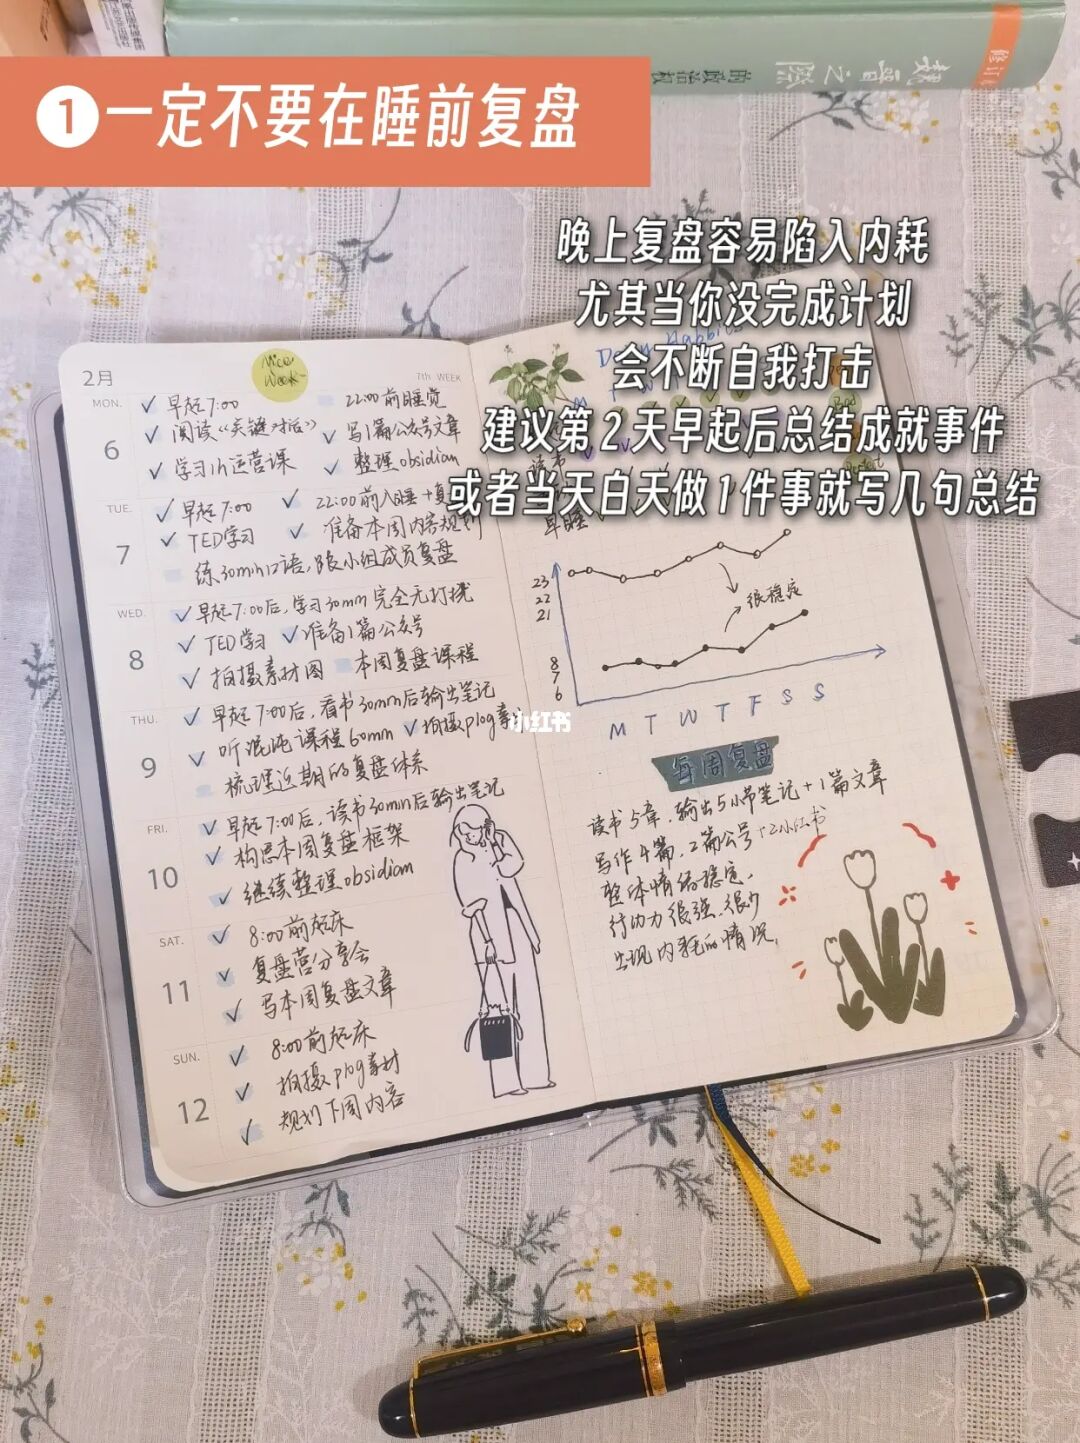 修订
魏晋之际
的政治权
❶一定不要在睡前复盘
晚上复盘容易陷入内耗
尤其当你没完成计划
会不断自我打击
建议第2天早起后总结成就事件
或者当天白天做1件事就写几句总结
2月
Nice Week
7th WEEK
MON.
6
✓ 早起7:00
22:00前睡觉
✓ 阅读《关键对话》
✓ 写1篇公众号文章
✓ 学习1h运营课
✓ 整理obsidian
TUE.
7
✓ 早起7:00
✓ 22:00前入睡+复
✓ TED学习
✓ 准备本周内容规划
练30min口语,跟小组成员复盘
WED.
8
✓ 早起7:00后,学习30min完全无打扰
✓ TED学习
✓ 准备1篇公众号
✓ 拍摄素材图
本周复盘课程
THU.
9
✓ 早起7:00后,看书30min后输出笔记
✓ 听混沌课程60min
✓ 拍摄plog素
梳理近期的复盘体系
FRI.
10
✓ 早起7:00后,读书30min后输出笔记
✓ 构思本周复盘框架
✓ 继续整理obsidian
SAT.
11
✓ 8:00前起床
✓ 复盘营分享会
✓ 写本周复盘文章
SUN.
12
✓ 8:00前起床
✓ 拍摄plog素材
✓ 规划下周内容
读书
早睡
23
22
21
很稳定
8
7
6
M T W T F S S
小红书
每周复盘
读书5章,输出5小节笔记+1篇文章
写作4篇,2篇公号+2小红书
整体情绪稳定,
行动力很强,很少
出现内耗的情况,